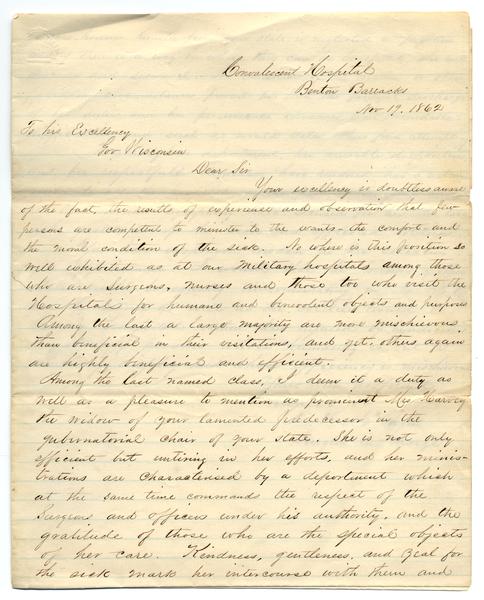 Convalescent Hospital
Benton Barracks
Nov 19. 1862
To his Excellency
Gov Wisconsin
Dear Sir
Your excellency is doubtless aware
of the fact, the results of experience and observation that few
persons are competent to minister to the wants - the comfort and
the moral condition of the sick. No where is this position so
well exhibited as at our military hospitals among those
who are surgeons, nurses and those too who visit the
Hospitals for humane and benevolent objects and purposes
Among the last a large majority are more mischievous
than beneficial in their visitations, and yet others again
are highly beneficial and efficient.
Among the last named class, I deem it a duty as
well as a pleasure to mention as prominent Mrs Harvey
the widow of your lamented predecessor in the
gubernatorial chair of your state. She is not only
efficient but untiring in her efforts, and her minis-
trations are characterised by a deportment which
at the same time commands the respect of the
Surgeon and officers under his authority, and the
gratitude of those who are the special objects
of her care. Kindness, gentleness, and zeal for
the sick mark her intercourse with them and